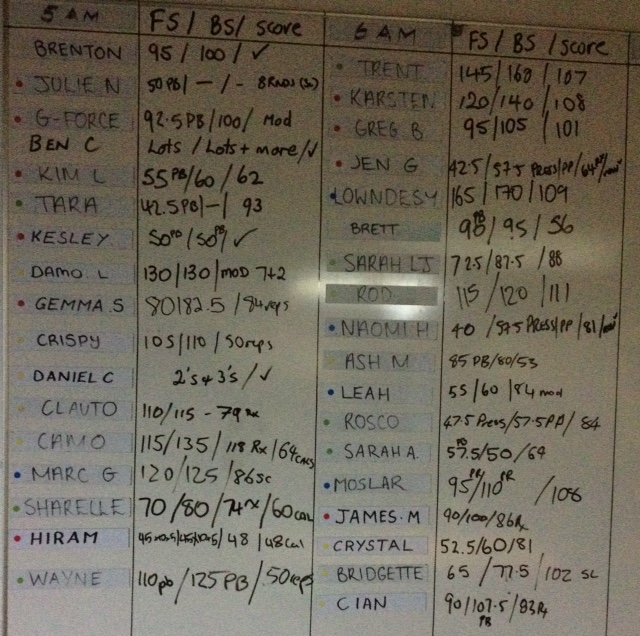 5 AM FS / BS / score
BRENTON 95 / 100 / ✓
JULIE N 50 PB / — / -
G-FORCE 92.5 PB / 100 / Mod
BEN C Lots / Lots + more / ✓
KIM L 55 PB / 60 / 62
TARA 42.5 PB / — / 93
KESLEY 50 PB / 50 PB / ✓
DAMO. L 130 / 130 / MOD 7+2
GEMMA.S 80 / 82.5 / 84 reps
CRISPY 105 / 110 / 50 reps
DANIEL C 2's + 3's / ✓
CLAUTO 110 / 115 - 79 Rx
CAMO 115 / 135 / 118 Rx / 64 CALS
MARC G 120 / 125 / 86 sc
SHARELLE 70 / 80 / 74 rx / 60 cal
HIRAM / 48 / 48 Cal
WAYNE 110 pb / 125 PB / 50 reps
6 AM FS / BS / score
TRENT 145 / 160 / 107
KARSTEN 120 / 140 / 108
GREG B 95 / 105 / 101
JEN G 42.5 / 57.5 PRESS / PP / 64
LOWNDESY 165 / 170 / 109
BRETT 90 PB / 95 / 56
SARAH LJ 72.5 / 87.5 / 88
ROD 115 / 120 / 111
NAOMI H 40 / 57.5 PRESS / PP / 81
ASH M 85 PB / 80 / 53
LEAH 55 / 60 / 84 mod
ROSCO 47.5 Press / 57.5 PP / 84
SARAH A. 57.5 PB / 50 / 69
MOSLAR 95 PR / 110 PR / 106
JAMES.M 90 / 100 / 86 Rx
CRYSTAL 52.5 / 60 / 81
BRIDGETTE 65 / 77.5 / 102 SC
CIAN 90 / 107.5 PB / 83 Rx